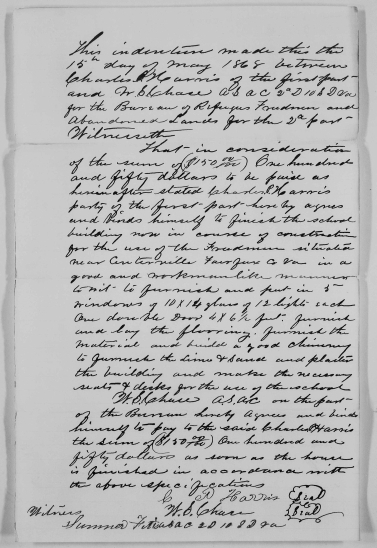 This indenture made this the
15th day of May 1868 between
Charles R Harris of the first part
and W. E. Chase A S A C 2d D 10th S D Va
for the Bureau of Refugees Freedmen and
Abandoned Lands for the 2d part
Witnesseth
That in consideration
of the sum of ($150 00/100) One hundred
and fifty dollars to be paid as
herein after stated Charles R Harris
party of the first part hereby agrees
and binds himself to finish the school
building now in course of construction
for the use of the Freedmen situated
near Centerville Fairfax Co Va in a
good and workmanlike manner
to wit to furnish and put in 5
windows of 10 x 14 glass of 12 lights each
One double Door 4 x 6 ½ feet. furnish
and lay the flooring, furnish the
material and build a good chimney
to furnish the Lime & Sand and plaster
the building and make the necessary
seats & desks for the use of the school
W. E. Chase A.S.A.C on the part
of the Bureau hereby Agrees and binds
himself to pay to the said Charles R Harris
the sum of ($150 00/100) One hundred and
fifty dollars as soon as the house
is finished in accordance with
the above specifications
C R Harris Seal
Witness W. E. Chase Seal
Sumner A S A C 2 D 10 S D Va